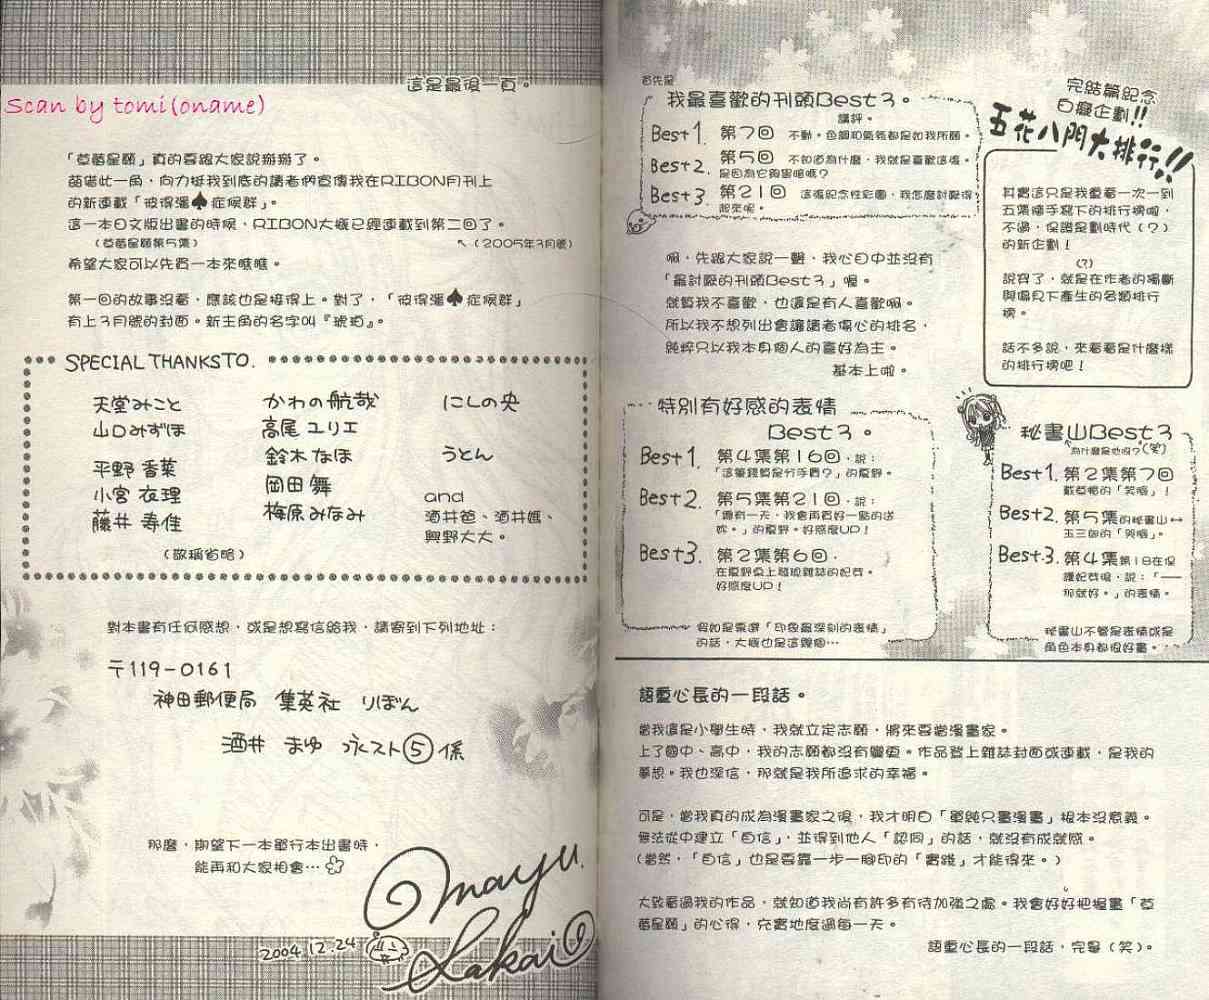 完結篇紀念
白癡企劃!!
五花八門大排行!!
其實這只是我畫著一次一到
五集隨手寫下的排行榜啦,
不過,保證是劃時代(?)
的新企劃!
(?)
說穿了,就是在作者的獨斷
與偏見下產生的各類排行
榜。
話不多說,來看看是什麼樣
的排行榜吧!
首先是
我最喜歡的刊頭Best3。
講評。
Best1. 第7回 不動。色調和氣氛都是如我所願。
Best2. 第5回 不知道為什麼,我就是喜歡這張。
是因為它夠害臊嗎?
Best3. 第21回 這張紀念性彩圖,我怎麼討厭得
起來呢。
啊,先跟大家說一聲,我心目中並沒有
「最討厭的刊頭Best3」喔。
就算我不喜歡,也還是有人喜歡啊。
所以我不想列出會讓讀者傷心的排名,
純粹只以我本身個人的喜好為主。
基本上啦。
特別有好感的表情
Best3。
Best1. 第4集第16回,說:
「這筆錢算是分手費?」的夏野。
Best2. 第5集第21回,說:
「總有一天,我會再買好一點的送
妳。」的夏野。好感度UP!
Best3. 第2集第6回,
在夏野桌上發現雜誌的妃芽。
好感度UP!
假如是票選「印象最深刻的表情」
的話,大概也是這幾個…
秘書山Best3
為什麼是他呀?(笑)
Best1. 第2集第7回
戴草帽的「笑臉」!
Best2. 第5集的秘書山↔
玉三郎的「哭臉」。
Best3. 第4集第18在保
護妃芽後,說:「──
那就好。」的表情。
秘書山不管是表情或是
角色本身都很好畫。
語重心長的一段話。
當我還是小學生時,我就立定志願,將來要當漫畫家。
上了國中、高中,我的志願都沒有變更。作品登上雜誌封面或連載,是我的
夢想。我也深信,那就是我所追求的幸福。
可是,當我真的成為漫畫家之後,我才明白「單純只畫漫畫」根本沒意義。
無法從中建立「自信」,並得到他人「認同」的話,就沒有成就感。
(當然,「自信」也是要靠一步一腳印的「實踐」才能得來。)
大致看過我的作品,就知道我尚有許多有待加強之處。我會好好把握畫「草
莓星願」的心得,充實地度過每一天。
語重心長的一段話,完畢(笑)。
這是最後一頁。
Scan by tomi(oname)
「草莓星願」真的要跟大家說掰掰了。
茲借此一角,向力挺我到底的讀者們宣傳我在RIBON月刊上
的新連載「彼得潘♠症候群」。
這一本日文版出書的時候,RIBON大概已經連載到第二回了。
(草莓星願第5集)
↖(2005年3月號)
希望大家可以先買一本來瞧瞧。
第一回的故事沒看,應該也是接得上。對了,「彼得潘♠症候群」
有上3月號的封面。新主角的名字叫『琥珀』。
SPECIAL THANKS TO.
天堂みこと かわの航哉 にしの央
山口みずほ 高尾ユリエ
平野香菜 鈴木なほ うとん
小宮衣理 岡田舞 and
藤井寿佳 梅原みなみ 酒井爸、酒井媽、
興野大大。
(敬稱省略)
對本書有任何感想,或是想寫信給我,請寄到下列地址:
〒119-0161
神田郵便局 集英社 りぼん
酒井 まゆ 永スト⑤係
那麼,期望下一本單行本出書時,
能再和大家相會…
2004.12.24
Mayu.
Sakai